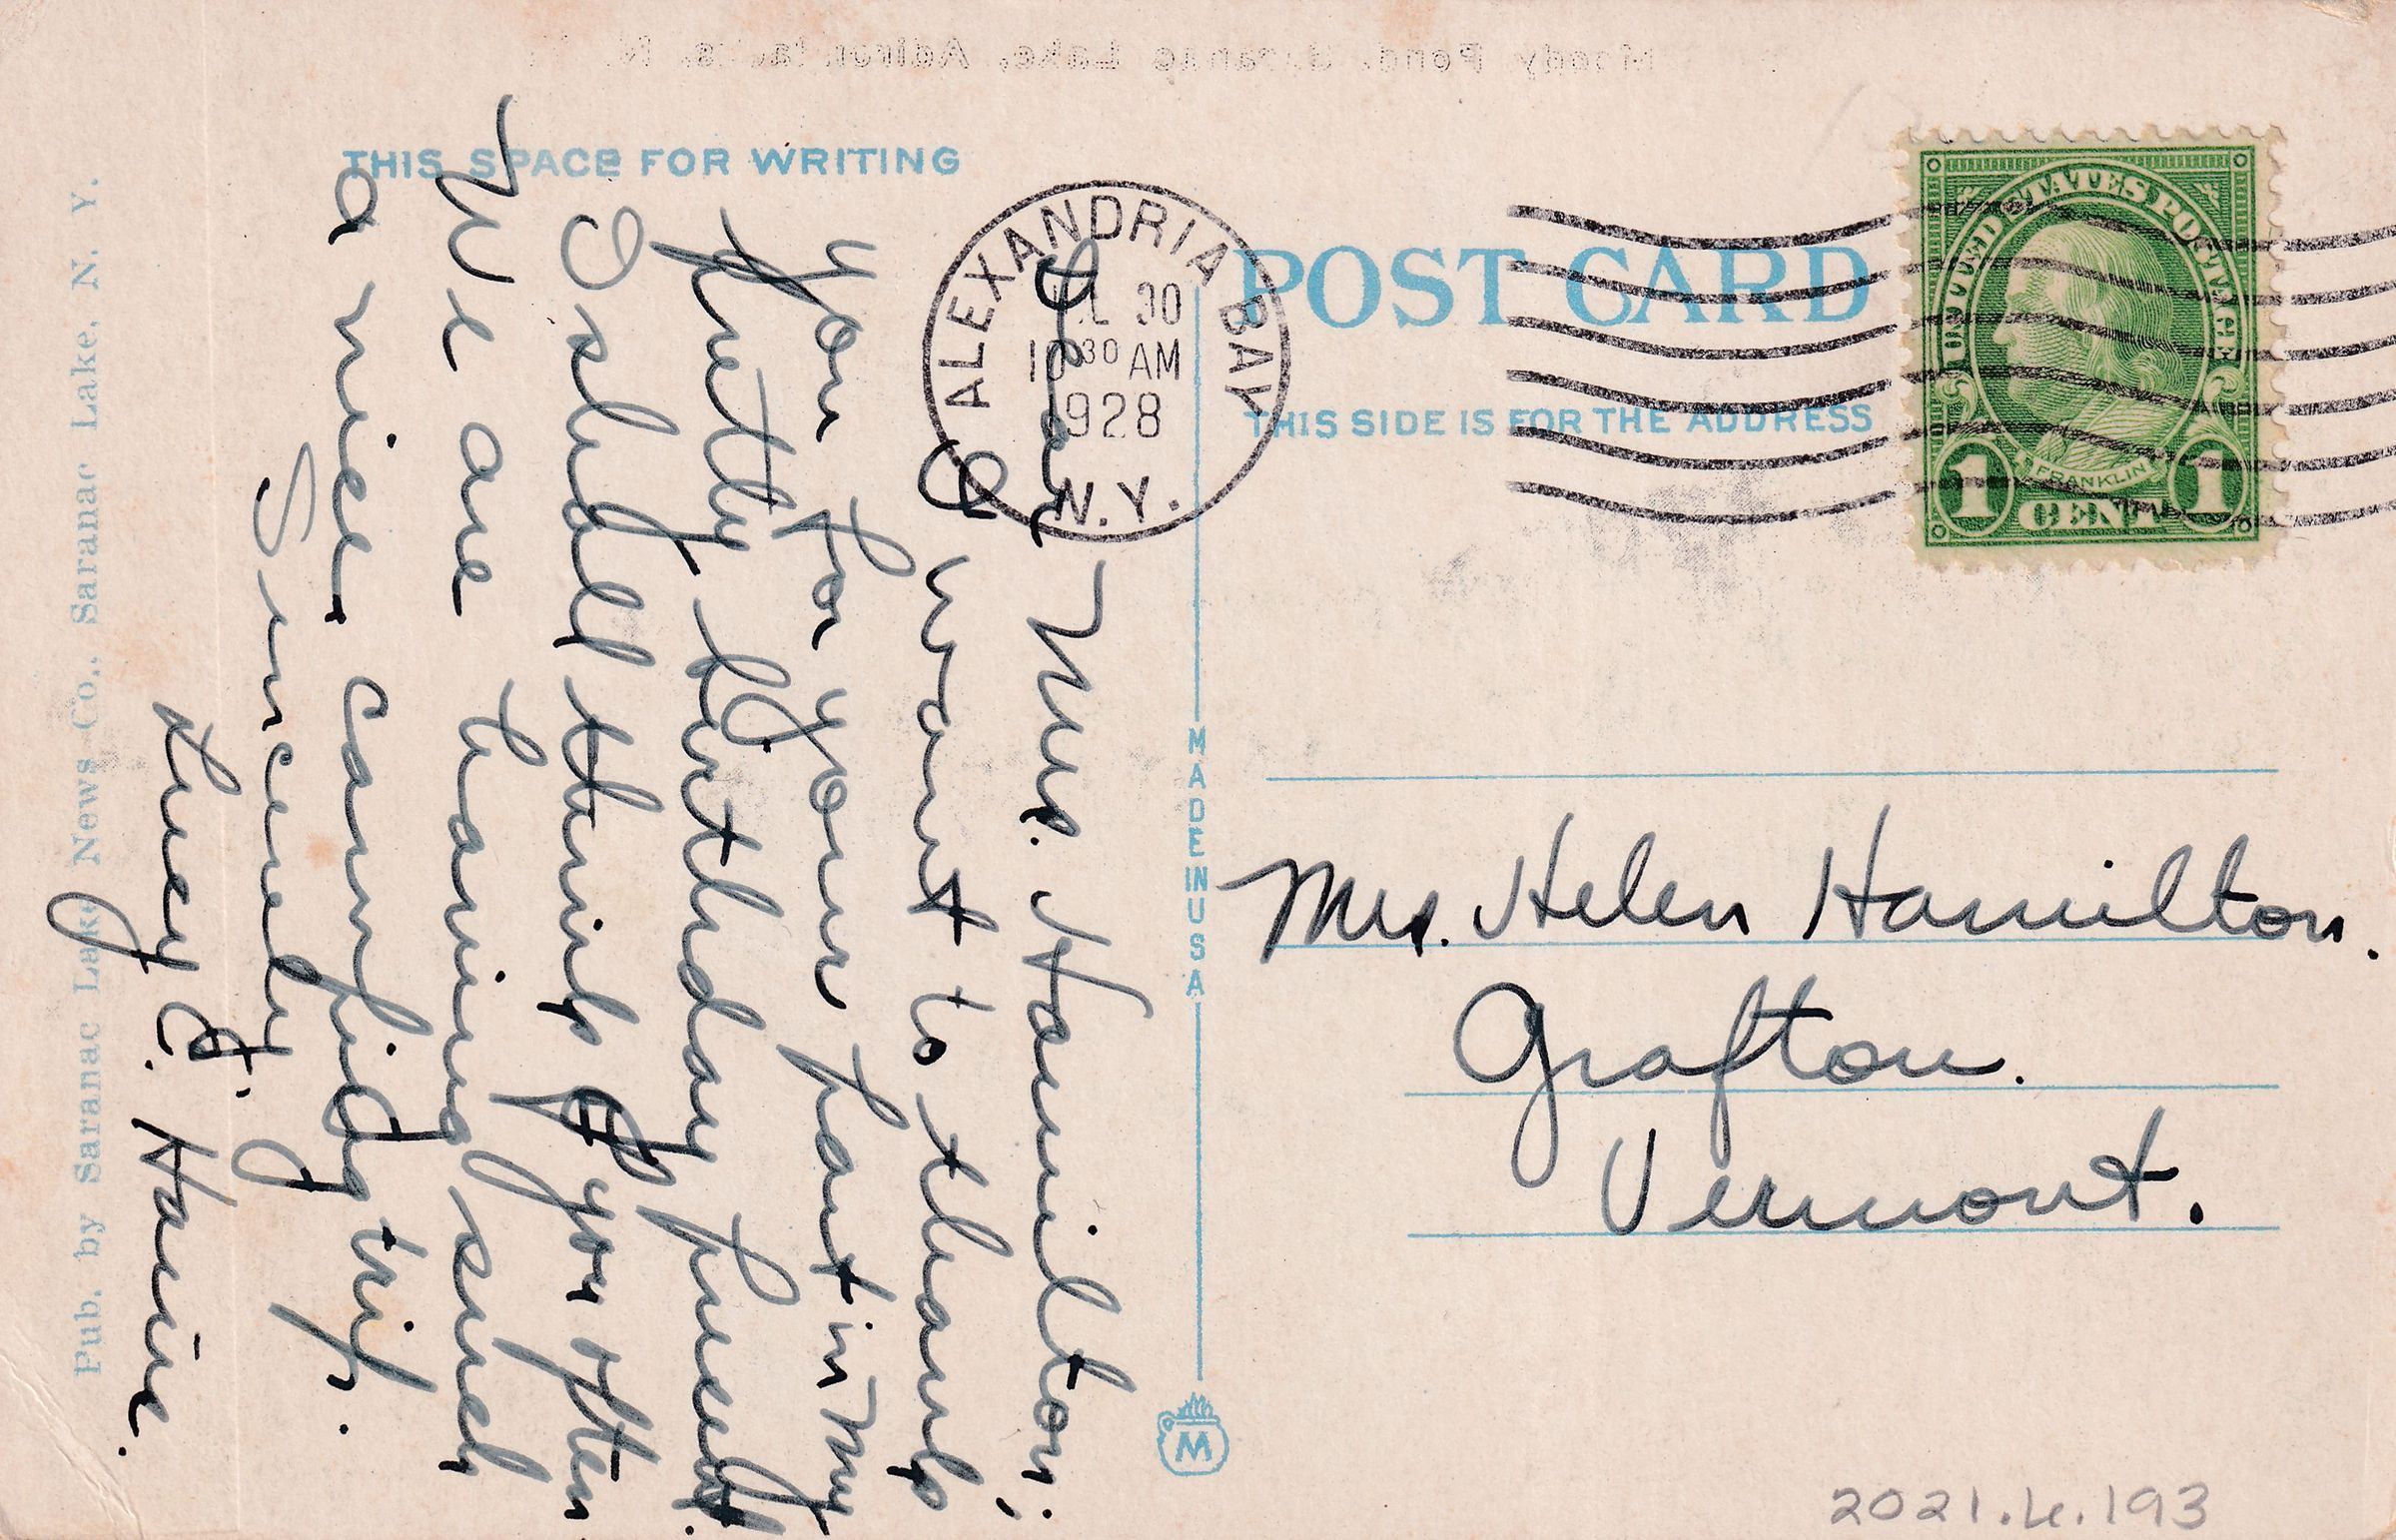 THIS SPACE FOR WRITING
POST CARD
THIS SIDE IS FOR THE ADDRESS
ALEXANDRIA BAY
JUL 30
10 30 AM
1928
N.Y.
UNITED STATES POSTAGE
FRANKLIN
1 CENT 1
Dear Mrs. Hamilton;
I want to thank
you for your part in my
pretty birthday present.
I shall think of you often
We are having such
a nice camping trip.
Sincerely
Lucy E. Haine.
Mrs. Helen Hamilton.
Grafton.
Vermont.
Pub. by Saranac Lake News Co., Saranac Lake, N. Y.
MADE IN USA
M
2021.4.193